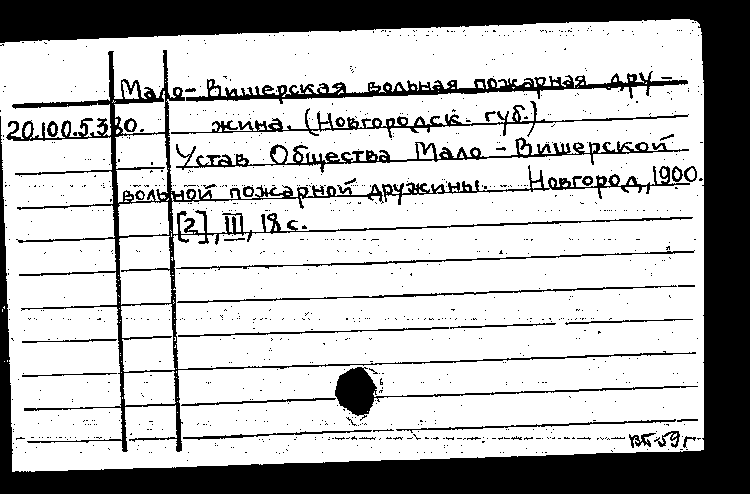 Мало-Вишерская вольная пожарная дру-
20.100.5.380. жина. (Новгородск. губ.)
Устав Общества Мало-Вишерской
вольной пожарной дружины. - Новгород, 1900.
[2], III, 18 с.